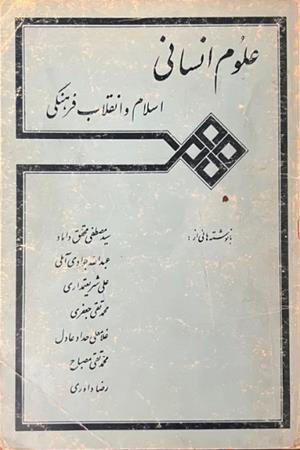 علوم انسانی
اسلام و انقلاب فرهنگی
با نوشته‌هائی از:
سید مصطفی محقق داماد
عبدالله جوادی آملی
علی شریعتمداری
محمد تقی جعفری
غلامعلی حداد عادل
محمد تقی مصباح
رضا داوری